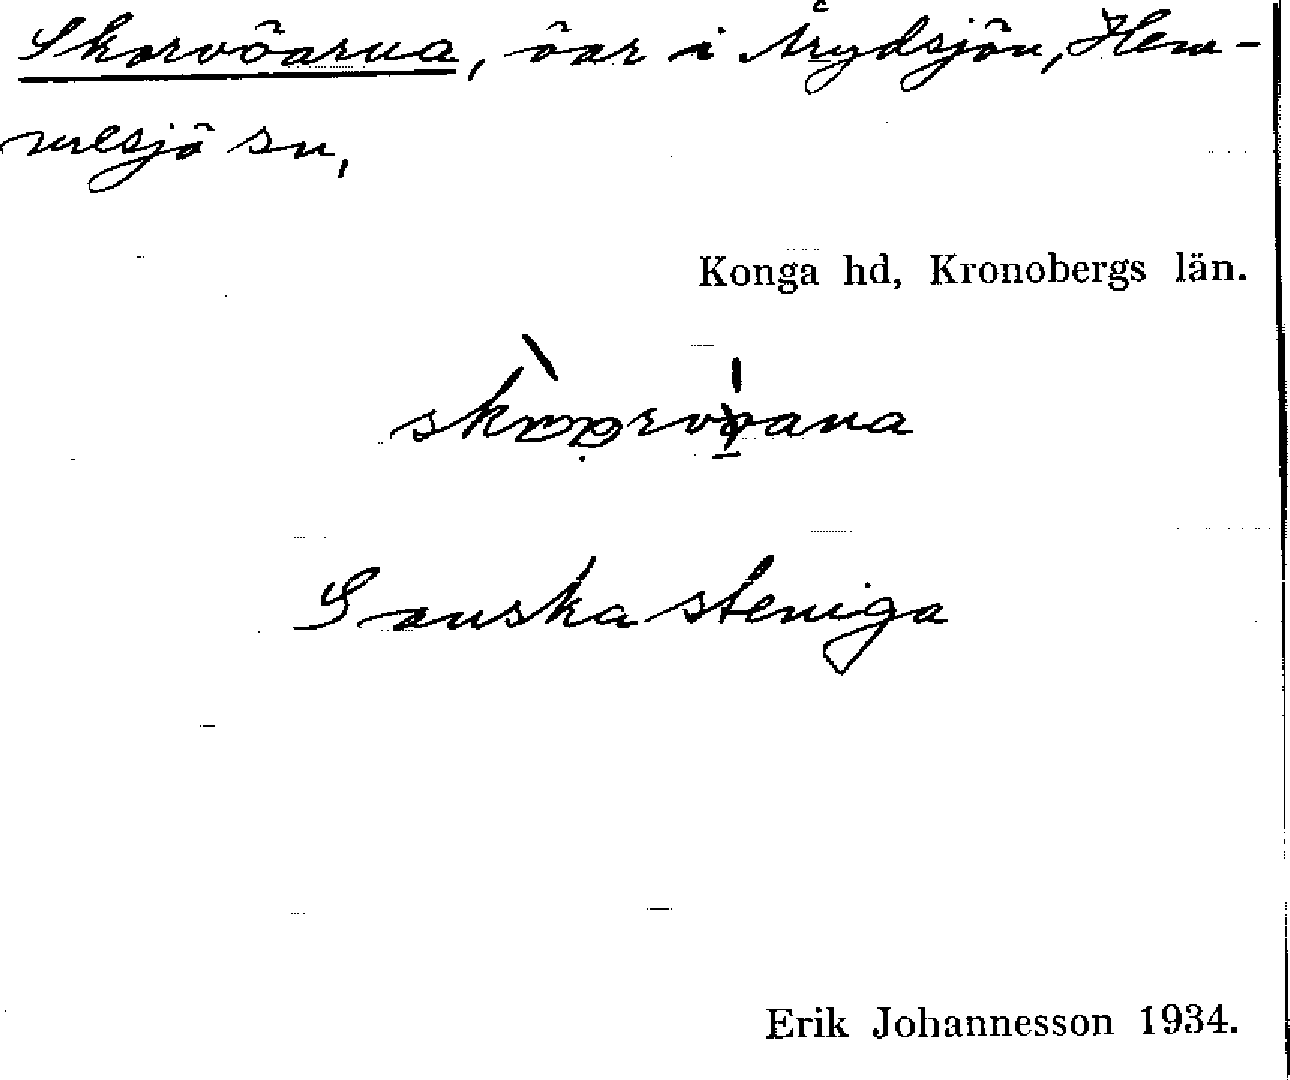 Skorvöarna, öar i Årydsjön, Hem-
mesjö sn,
Konga hd, Kronobergs län.
Ganska steniga
Erik Johannesson 1934.